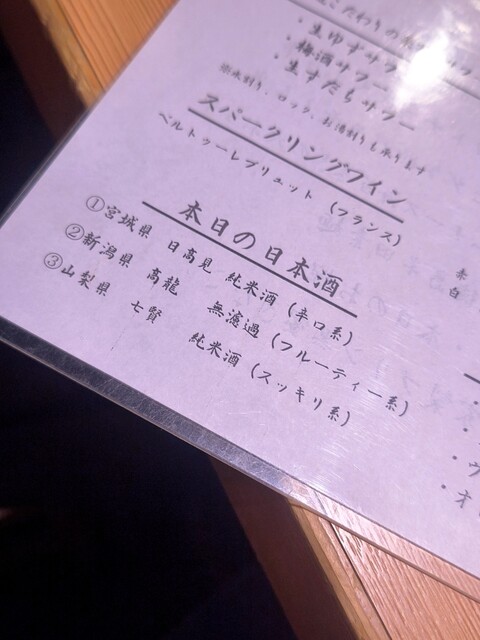 ・生ゆずサワー
・梅酒サワー
・生すだちサワー
※水割り、ロック、お湯割りも承ります
スパークリングワイン
ベルトゥーレブリュット (フランス)
本日の日本酒
①宮城県 日高見 純米酒 (辛口系)
②新潟県 高龍 無濾過 (フルーティー系)
③山梨県 七賢 純米酒 (スッキリ系)
赤
白